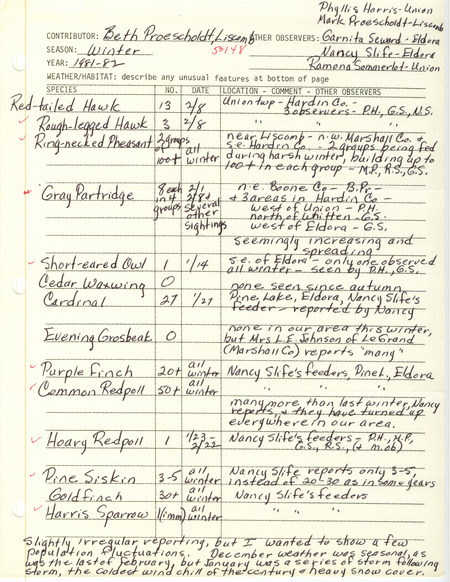 Phyllis Harris-Union
Mark Proescholdt-Liscomb
CONTRIBUTOR: Beth Proescholdt, Liscomb OTHER OBSERVERS: Garnita Seward - Eldora
SEASON: Winter 50148 Nancy Slife - Eldora
YEAR: 1981-82 Ramona Sommerlot-Union
WEATHER/HABITAT: describe any unusual features at bottom of page
SPECIES NO. DATE LOCATION - COMMENT - OTHER OBSERVERS
Red-tailed Hawk 13 2/8 Union twp - Hardin Co. -
3 observers - P.H., G.S., N.S.
Rough-legged Hawk 3 2/8 " " "
Ring-necked Pheasant 2 groups of 100+ all winter near Liscomb - n.w. Marshall Co. &
s.e. Hardin Co. - 2 groups being fed
during harsh winter, building up to
100+ in each group - M.P., R.S., G.S.
Gray Partridge 8 each in 4 groups 2/1 2/8 & several other sightings n.e. Boone Co - B.P. -
& 3 areas in Hardin Co -
west of Union - P.H.
north of Whitten - G.S.
west of Eldora - G.S.
seemingly increasing and
spreading
Short-eared Owl 1 1/14 s.e. of Eldora - only one observed
all winter - seen by P.H., G.S.
Cedar Waxwing 0 none seen since autumn
Cardinal 27 1/27 Pine Lake, Eldora, Nancy Slife's
feeder - reported by Nancy
Evening Grosbeak 0 none in our area this winter,
but Mrs L.E. Johnson of LeGrand
(Marshall Co) reports "many"
Purple Finch 20+ all winter Nancy Slife's feeders, Pine L, Eldora
Common Redpoll 50+ all winter " " "
many more than last winter, Nancy
reports, & they have turned up
everywhere in our area.
Hoary Redpoll 1 1/23- 2/22 Nancy Slife's feeders - P.H., M.P.,
G.S., R.S., (& m.ob)
Pine Siskin 3-5 all winter Nancy Slife reports only 3-5,
instead of 20-30 as in some years
Goldfinch 30+ all winter Nancy Slife's feeders
Harris Sparrow 1(imm) all winter " " "
Slightly irregular reporting, but I wanted to show a few
population fluctuations. December weather was seasonal, as
was the last of February, but January was a series of storm following
storm, the coldest wind chill of the century & heavy snow cover.